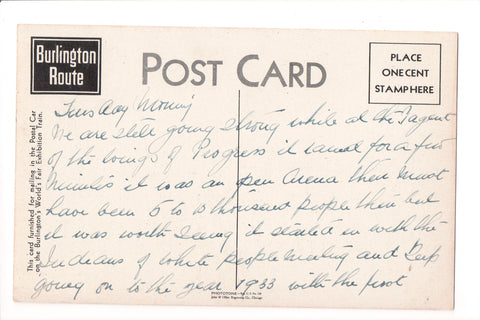 Burlington
Route
POST CARD
PLACE
ONE CENT
STAMP HERE
This card furnished for mailing in the Postal Car
on the Burlington's World's Fair Exhibition Train.
Tuesday Morning
We are still going strong while at the Pagent
of the wings of Progress it rained for a few
Minutes it was an open Arena there must
have been 5 to 10 thousand people there but
it was worth seeing it started in with the
Indians & white people meeting and kep
going on to the year 1933 with the first
PHOTOTONE